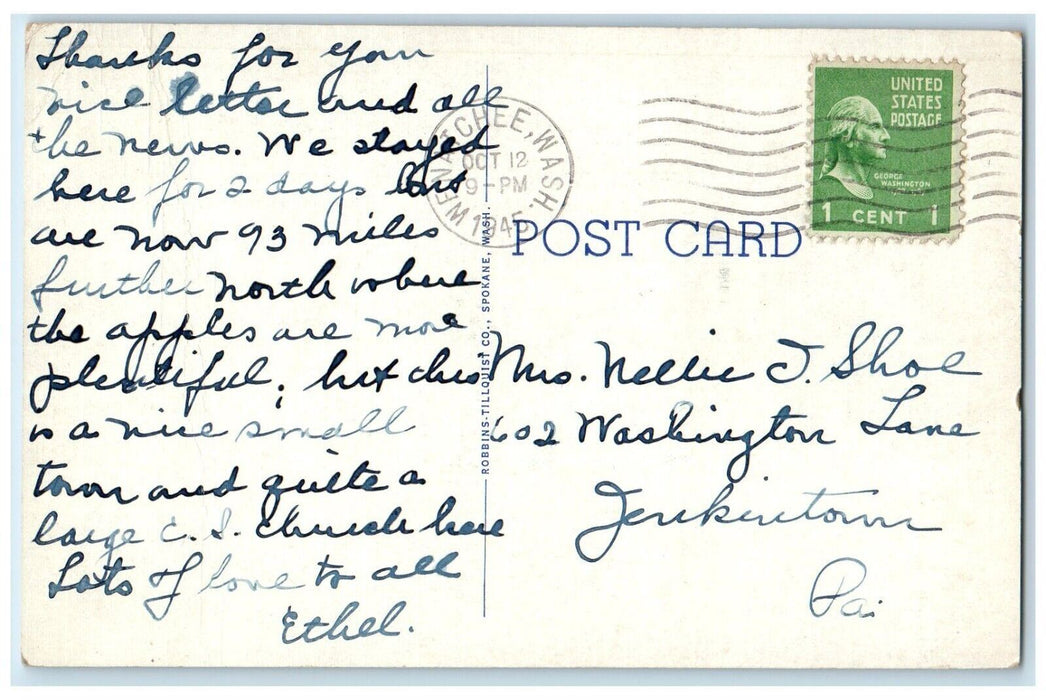 Thanks for your
nice letter and all
the news. We stayed
here for 2 days but
are now 93 miles
further north where
the apples are more
plentiful; but this
is a nice small
town and quite a
large C. S. Church here
Lots of love to all
Ethel.
WENATCHEE, WASH.
OCT 12
9-PM
1945
UNITED
STATES
POSTAGE
GEORGE
WASHINGTON
1 CENT 1
POST CARD
ROBBINS-TILLQUIST CO., SPOKANE, WASH.
Mrs. Nellie J. Shoe
602 Washington Lane
Jenkintown
Pa.